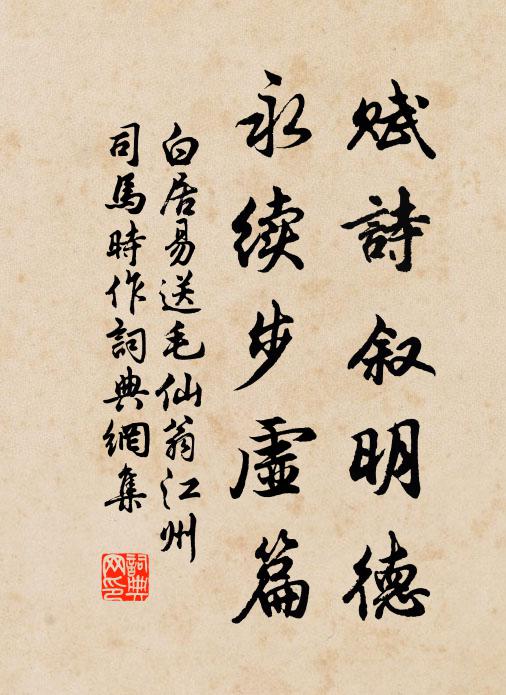 赋詩叙明德
永续步虛篇
白居易送毛仙翁江州
司馬時作詞典網集
詞典
网印